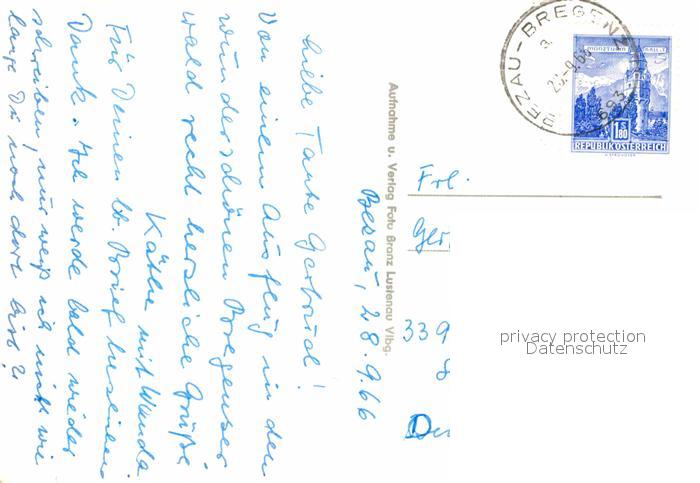 Liebe Tante Gertrud!
Von einem Ausflug in den
wunderschönen Bregenzer
wald recht herzliche Grüße
Käthe mit Wanda
Für Deinen lb. Brief herzlichen
Dank. Ich werde bald wieder
schreiben, nur weiß ich nicht wie
lange Du noch dort bist?
Aufnahme u. Verlag Foto Branz Lustenau Vlbg.
Bezau, 28.9.66
BEZAU-BREGENZ
MÜNZTURM
HALL i. T.
1.80
REPUBLIK ÖSTERREICH
Frl.
Ger
339
privacy protection
Datenschutz